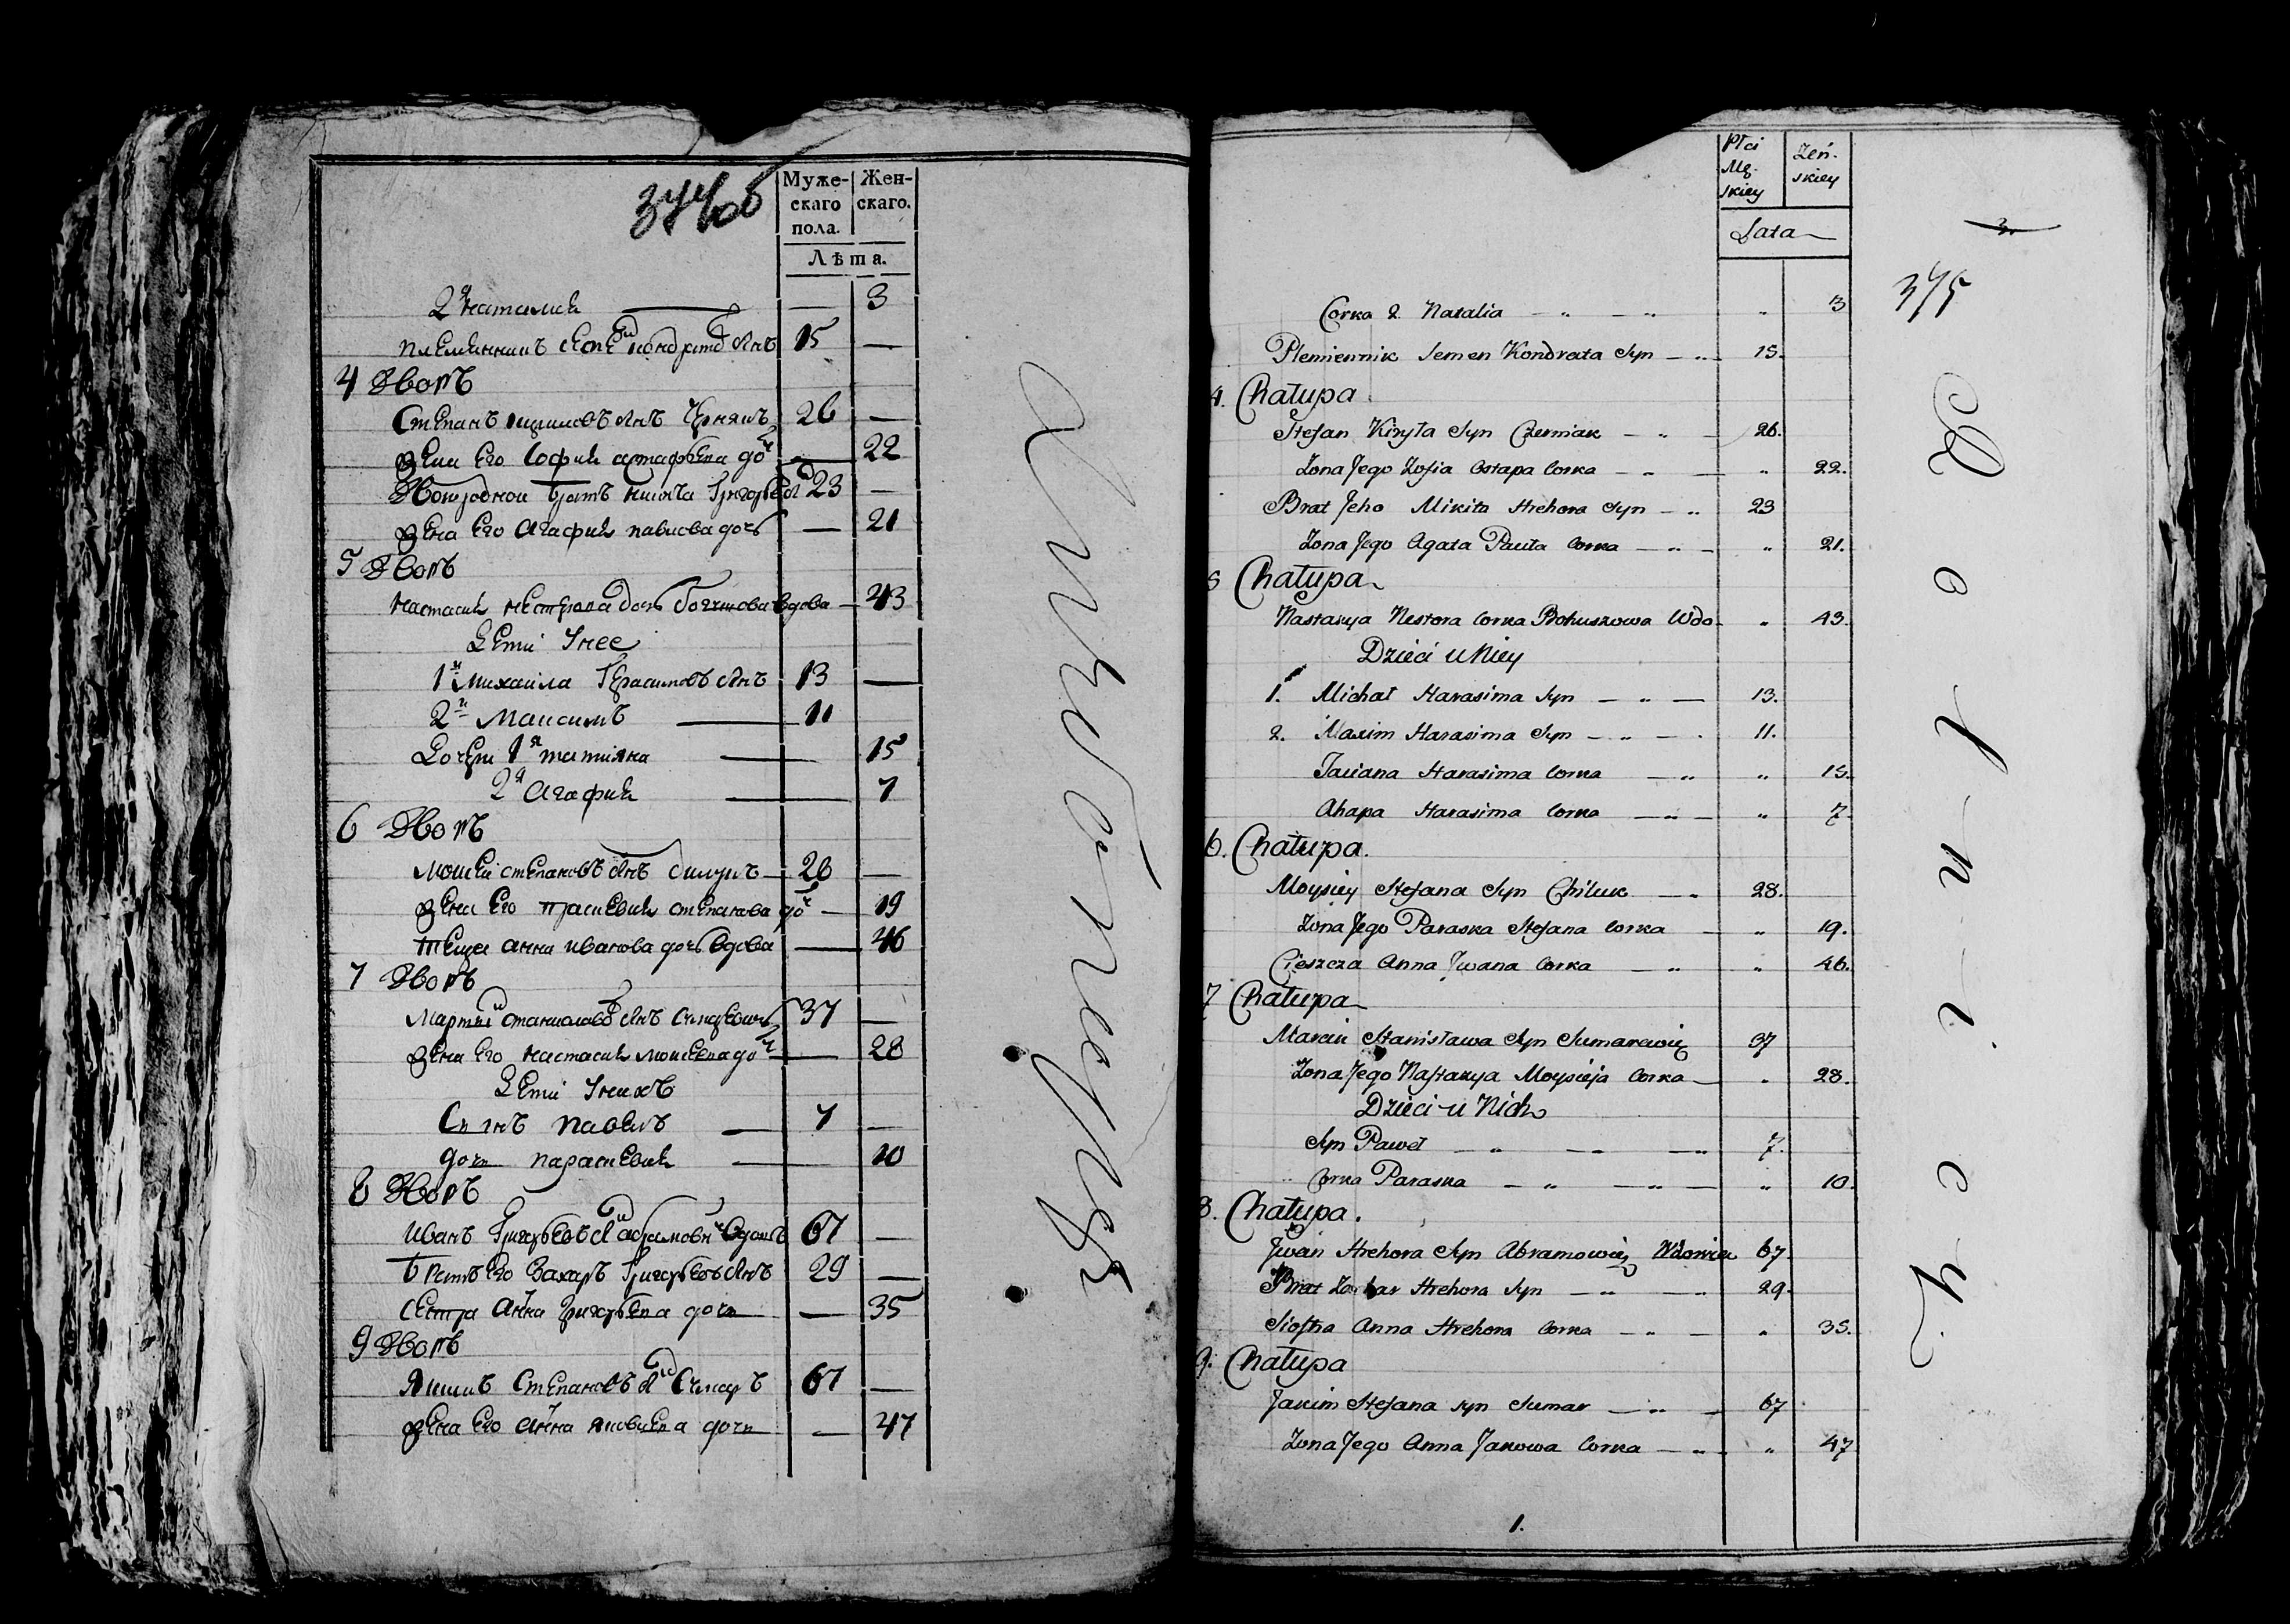 374об
Муже-
скаго
пола.
Жен-
скаго.
Лѣта.
2я наталия — — 3
племянникъ семенъ кондратовъ сынъ 15 —
4 Дворъ
Степанъ кириловъ сынъ Чернякъ 26 —
жена его София астафьева доч — 22
Двоюродной братъ никита Григорьевъ 23 —
жена его Агафия павлова дочь — 21
5 Дворъ
настасия нестерова дочь вдова — 43
Дети Унее
1й михаила Герасимовъ сынъ 13 —
2й Максимъ — 11
Дочери 1я татияна — 15
2я Агафия — 7
6 Дворъ
моисей степановъ сынъ 28 —
жена его прасковия степанова доч — 19
теща анна иванова дочь вдова — 46
7 Дворъ
Мартин станиславовъ сынъ 37 —
жена его настасия моисеева доч — 28
Дети Унихъ
Сынъ павелъ — 7 —
дочь парасковия — 10
8 Дворъ
Иванъ Григорьевъ сынъ абрамовичъ вдовъ 67 —
братъ его Захаръ Григорьевъ сынъ 29 —
сестра Анна григорьева дочь — 35
9 Дворъ
Якимъ Степановъ 67 —
жена его Анна яковлева дочь — 47
Płci
Mę-
skiey
Żeń-
skiey
Lata
3.
375
Corka 2. Natalia — „ — „ „ 3
Plemiennik Semen Kondrata Syn — „ 15.
4. Chałupa
Stefan Kiryła Syn Czerniak — „ — 26.
Zona Jego Zofia Ostapa Corka — „ „ 22.
Brat Jeho Mikita Hrehora Syn — „ 23
Zona Jego Agata Pauła Corka — „ — „ 21.
5 Chałupa
Nastazya Nestora Corka Bohuszowa Wdo. „ 43.
Dzieci u Niey
1. Michał Harasima Syn — „ — 13.
2. Maxim Harasima Syn — „ — 11.
Taciana Harasima Corka — „ „ 15.
Ahapa Harasima Corka — „ — „ 7.
6. Chałupa.
Moysiey Stefana Syn Chiluk — „ 28.
Zona Jego Paraska Stefana Corka — „ 19.
Cieszcza Anna Jwana Corka — „ „ 46.
7 Chałupa
Marcin Stanisława Syn Sumarewicz 37
Zona Jego Nastazya Moysieja Corka — „ 28.
Dzieci u Nich
Syn Paweł — „ — „ — „ 7.
Corka Paraska — „ — „ — „ 10.
8. Chałupa.
Jwan Hrehora Syn Abramowicz Wdowiec 67.
Brat Zachar Hrehora Syn — „ — „ 29.
Siostra Anna Hrehora Corka — „ — „ 35.
9. Chałupa
Jakim Stefana Syn Sumar — „ — 67
Zona Jego Anna Jakowa Corka — „ „ 47
1.